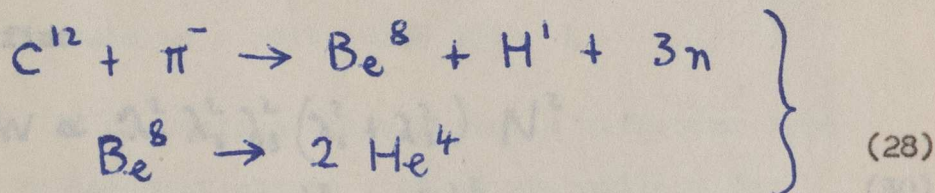 C¹² + π⁻ → Be⁸ + H¹ + 3n
Be⁸ → 2 He⁴ (28)